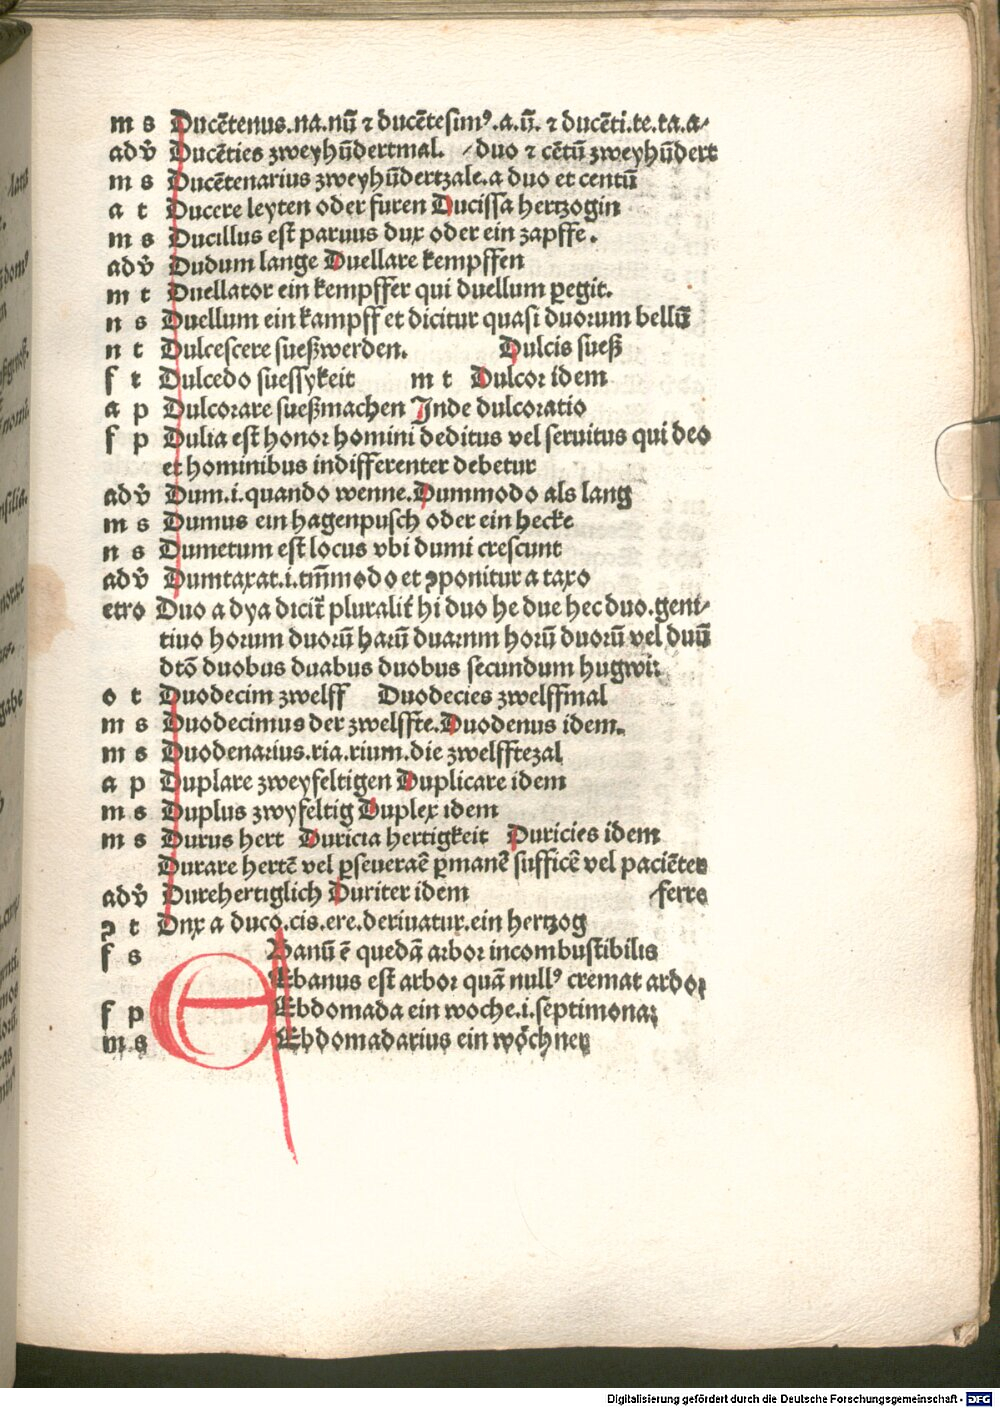 m s Ducētenus.na.nū ⁊ ducētesimꝰ.a.ū. ⁊ ducēti.te.ta.a⸗
adv̄ Ducēties zweyhūdertmal. ⸗duo ⁊ cētū zweyhūdert
m s Ducētenarius zweyhūdertzale.a duo et centū
a t Ducere leyten oder furen Ducissa hertzogin
m s Ducillus est paruus dux oder ein zapffe.
adv̄ Dudum lange Duellare kempffen
m t Duellator ein kempffer qui duellum ꝑegit.
n s Duellum ein kampff et dicitur quasi duorum bellū
n t Dulcescere sueßwerden. Dulcis sueß
f t Dulcedo suessykeit m t Dulcor idem
a p Dulcorare sueßmachen Inde dulcoratio
f p Dulia est honor homini deditus vel seruitus qui deo
et hominibus indifferenter debetur
adv̄ Dum.i.quando wenne.Dummodo als lang
m s Dumus ein hagenpusch oder ein hecke
n s Dumetum est locus vbi dumi crescunt
adv̄ Dumtaxat.i.tm̄modo et ꝯponitur a taxo
etro Duo a dya dicit᷑ pluralit᷑ hi duo he due hec duo.geni⸗
tiuo horum duorū harū duarum horū duorū vel duū
dtō duobus duabus duobus secundum hugwi:
o t Duodecim zwelff Duodecies zwelffmal
m s Duodecimus der zwelffte.Duodenus idem.
m s Duodenarius.ria.rium.die zwelfftezal
a p Duplare zweyfeltigen Duplicare idem
m s Duplus zwyfeltig Duplex idem
m s Durus hert Duricia hertigkeit Duricies idem
Durare hertē vel ꝑseueraē ꝑmanē sufficē vel paciēter
adv̄ Durehertiglich Duriter idem ⸗ferre
ꝯ t Dux a duco.cis.ere.deriuatur.ein hertzog
f s Banū ē quedā arbor incombustibilis
Ebanus est arbor quā nullꝰ cremat ardor
f p Ebdomada ein woche.i.septimona:
m s Ebdomadarius ein wöchner
Digitalisierung gefördert durch die Deutsche Forschungsgemeinschaft - DFG